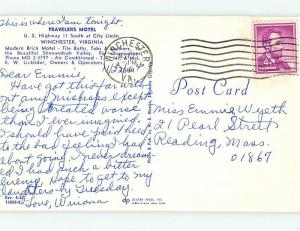 This is where I am tonight.
TRAVELERS MOTEL
U. S. Highway 11 South at City Limits
WINCHESTER, VIRGINIA
Modern Brick Motel - Tile Baths, Tubs &
the Beautiful Shenandoah Valley.
Phone MO 2-4797 - Air Conditioned - T
R. W. Owners & Operators
Dear Emmie,
Have got this far with
out and mishaps except
than I ever imagined.
I should have paid heed
to the bad feeling I had
about going. I never dreamed
I had such a bitter
enemy. Hope to get to my
daughters by Tuesday.
Love, Winona
WINCHESTER
PM
VA.
Post Card
Miss Emmie Wyeth
21 Pearl Street
Reading, Mass.
01867
DEXTER PRESS, INC.
WEST NYACK, NEW YORK